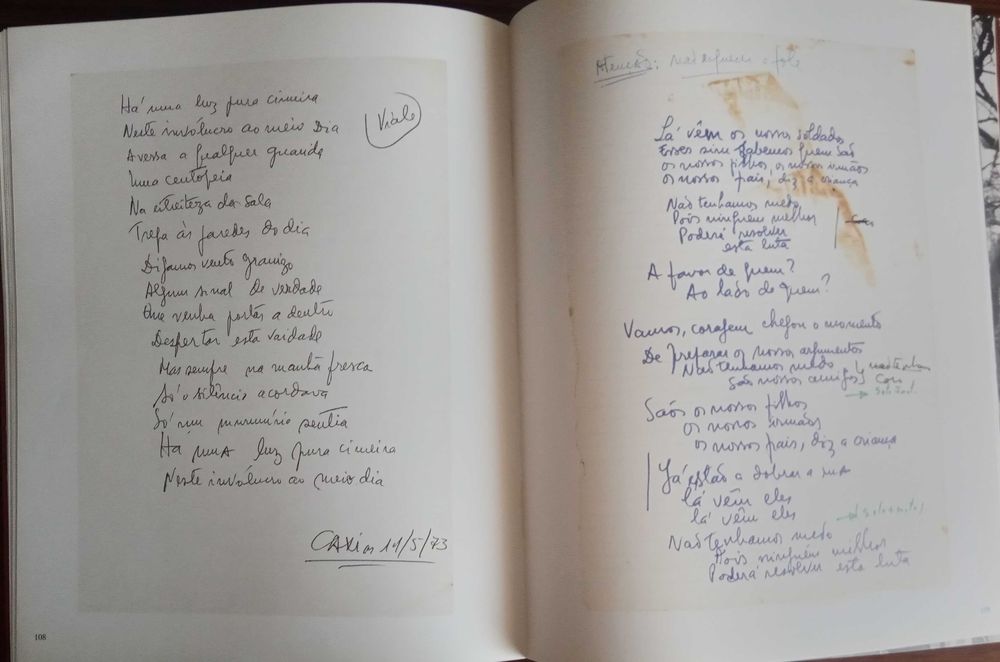 Há uma luz pura cimeira
Neste invólucro ao meio dia
Avessa a qualquer guarida
Uma centopeia
Na estreiteza da sala
Trepa às paredes do dia
Digamos vento granizo
Algum sinal de verdade
Que venha portas a dentro
Despertar esta vaidade
Mas sempre na manhã fresca
Só o silêncio acordava
Só um murmúrio sentia
Há uma luz pura cimeira
Neste invólucro ao meio dia
Viale
Caxias 19/5/73
108
Atenção: não
Lá vêm os nossos soldados
Esses sim sabemos quem são
os nossos filhos, os nossos irmãos
os nossos pais, diz a criança
Não tenhamos medo
Pois ninguém melhor
Poderá resolver
esta luta
A favor de quem?
Ao lado de quem?
Vamos, coragem chegou o momento
De preparar os nossos argumentos
Não tenhamos medo
São nossos amigos
Coro
São os nossos filhos
os nossos irmãos
os nossos pais, diz a criança
Já estão a dobrar a rua
Lá vêm eles
Lá vêm eles
Não tenhamos medo
Pois ninguém melhor
Poderá resolver esta luta
109